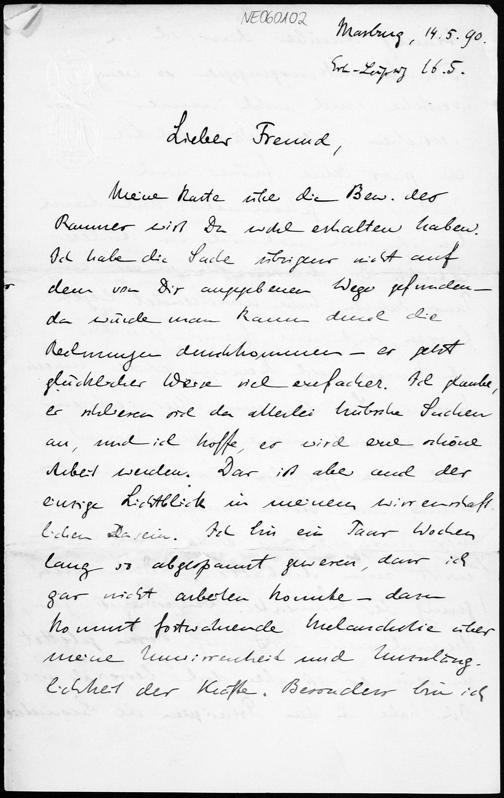 NE060102
Marburg, 14.5.90.
Erh. Leipzig 16.5.
Lieber Freund,
Meine Karte über die Bew. des
Raumes wirst Du wohl erhalten haben.
Ich habe die Sache übrigens nicht auf
dem von Dir angegebenen Wege gefunden —
da würde man kaum durch die
Rechnungen durchkommen — es geht
glücklicher Weise viel einfacher. Ich glaube,
es schliessen sich da allerlei hübsche Sachen
an, und ich hoffe, es wird eine schöne
Arbeit werden. Das ist aber auch der
einzige Lichtblick in meinem wissenschaft-
lichen Dasein. Ich bin ein Paar Wochen
lang so abgespannt gewesen, dass ich
gar nicht arbeiten konnte — dazu
kommt fortwährende Melancholie über
meine Unwissenheit und Unzuläng-
lichkeit der Kräfte. Besonders bin ich